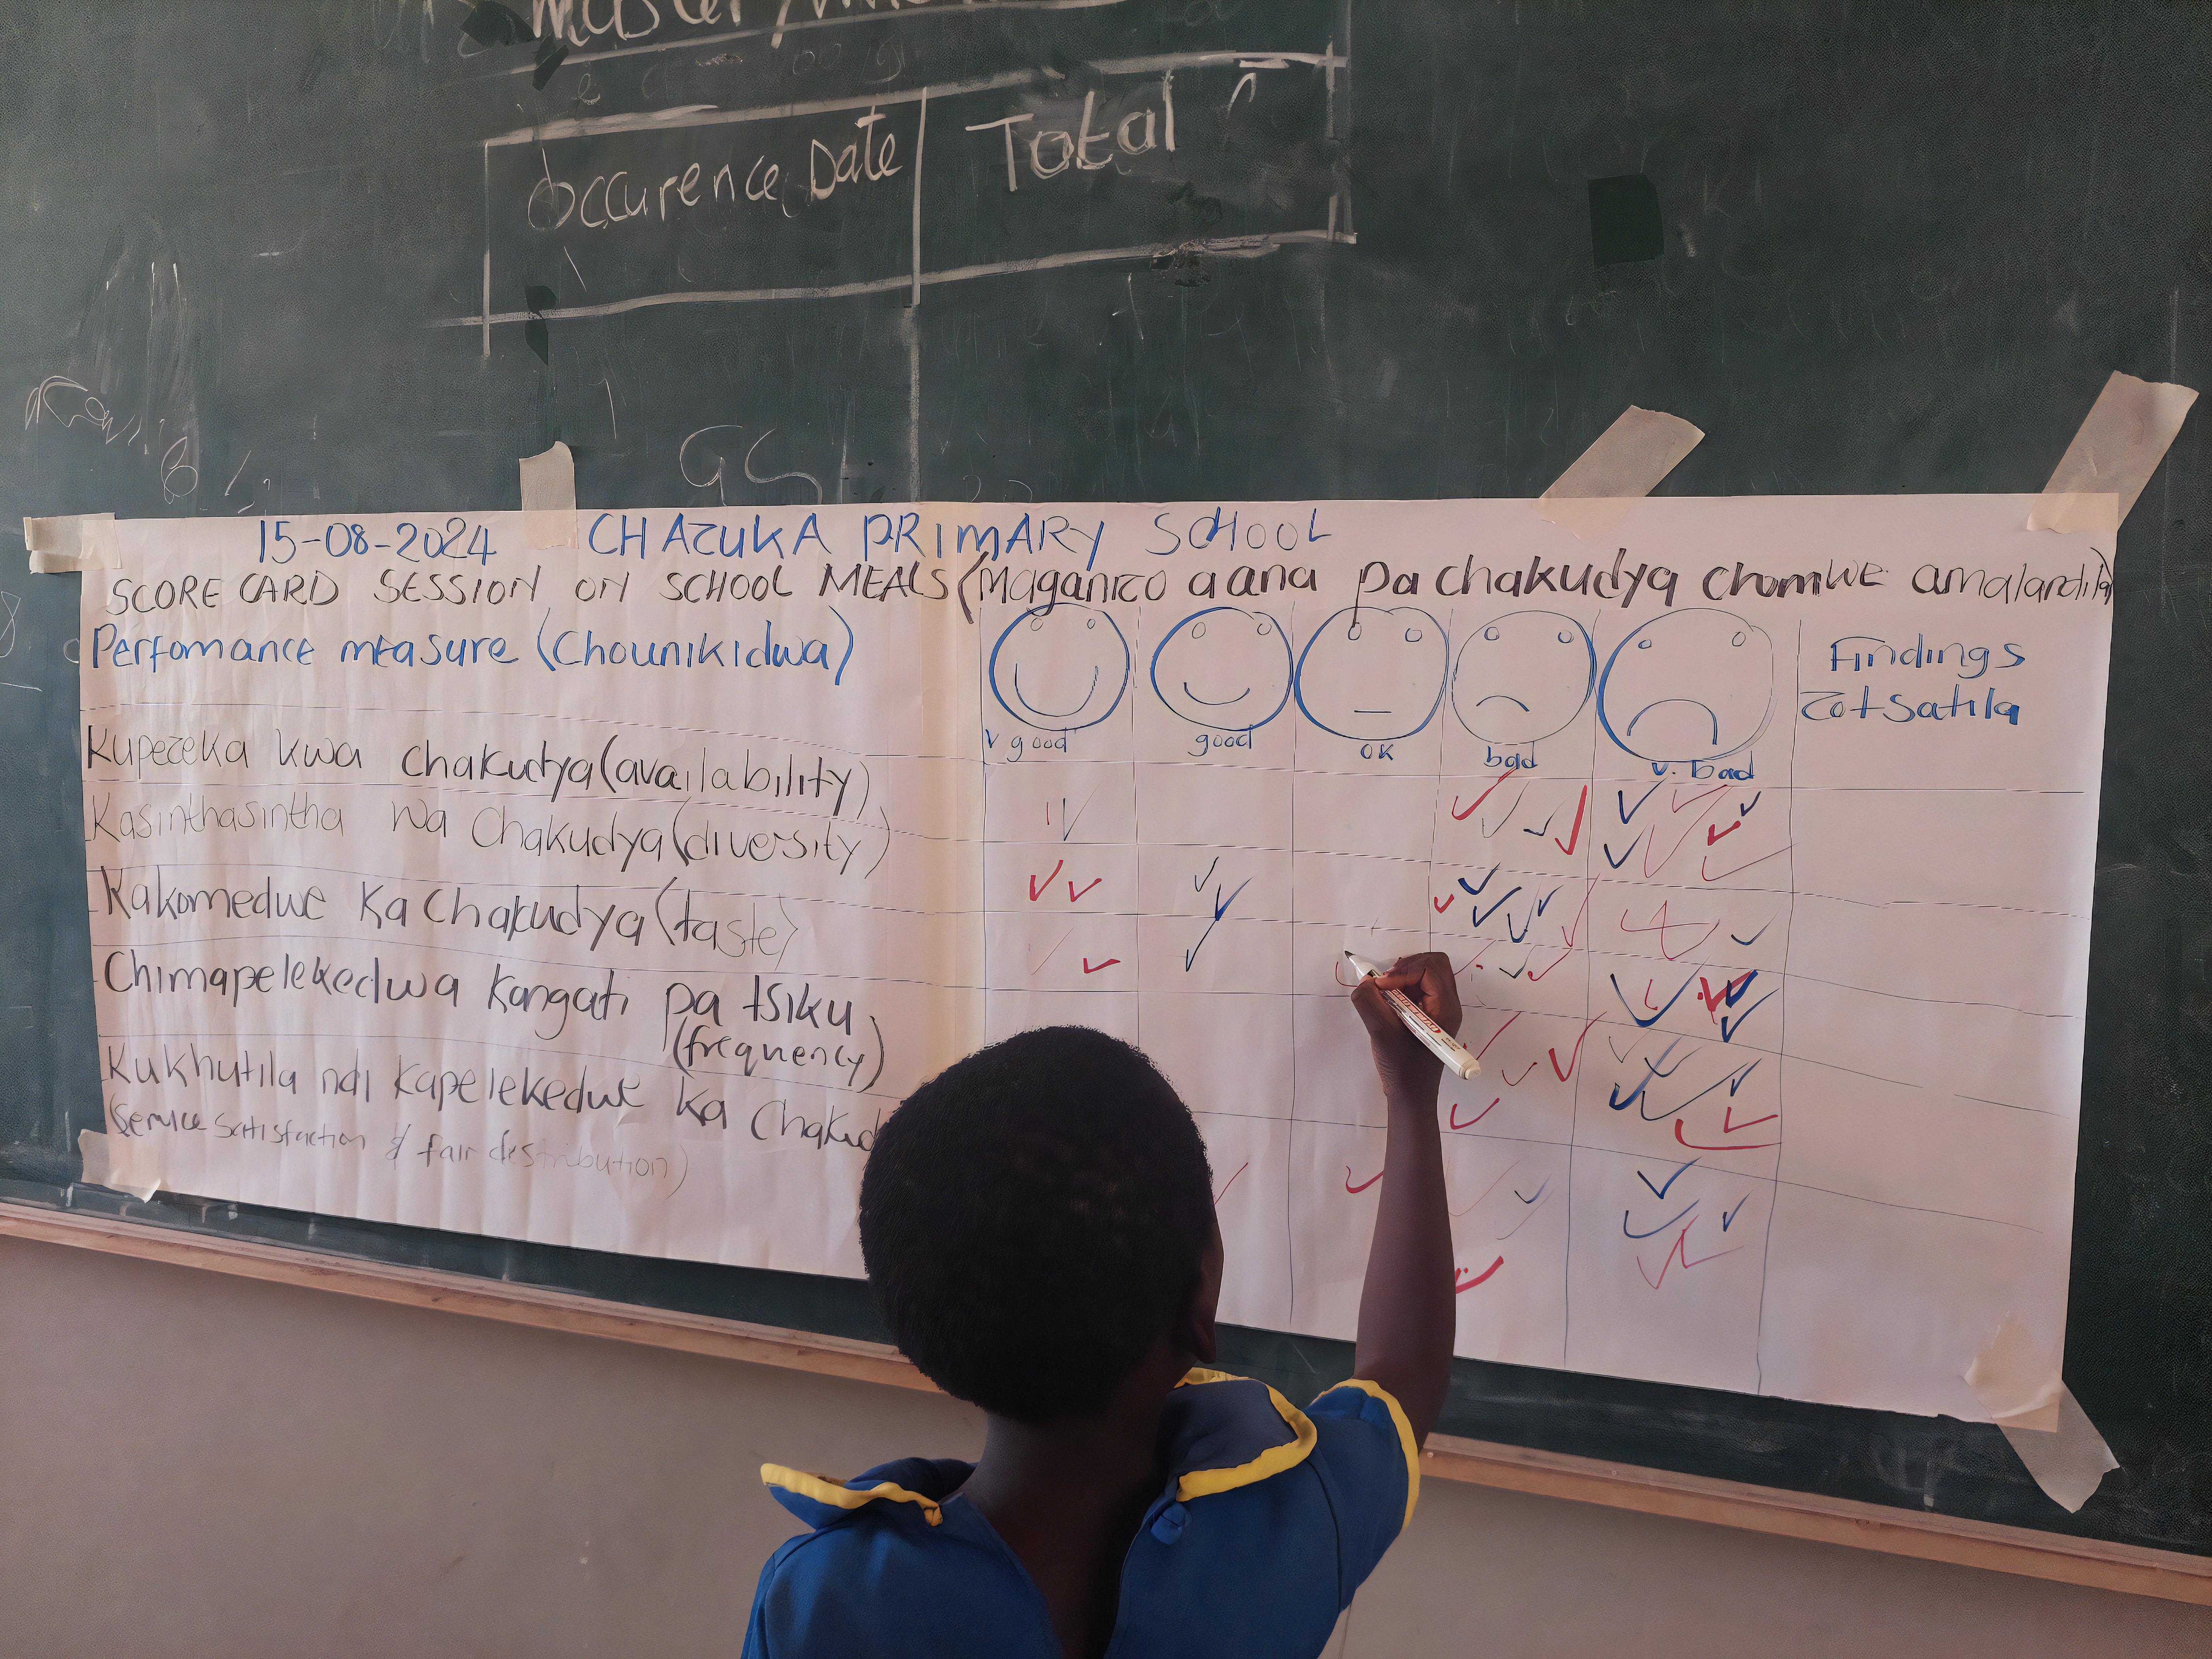 Occurence Date Total
GS
15-08-2024 CHAZUKA PRIMARY SCHOOL
SCORE CARD SESSION ON SCHOOL MEALS (Maganizo a ana pa chakudya chomwe amalandila)
Perfomance measure (Chounikidwa)
Findings
Zotsatila
v good good OK bad v. bad
Kupezeka kwa chakudya (availability)
Kasinthasintha wa Chakudya (diversity)
Kakomedwe Ka Chakudya (taste)
Chimapelekedwa Kangati pa tsiku
(frequency)
Kukhutila ndi Kapelekedwe Ka Chakud
(service satisfaction & fair distribution)